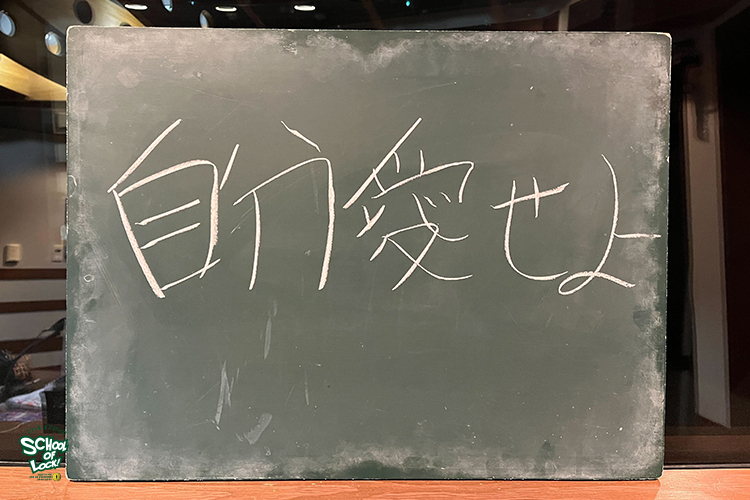 自分愛せよ
SCHOOL
OF
LOCK!